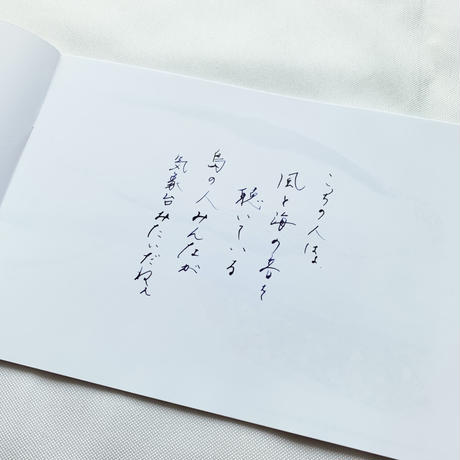 こちの人は
風と海の音を
聴いている
島の人みんなが
気象台みたいだねえ